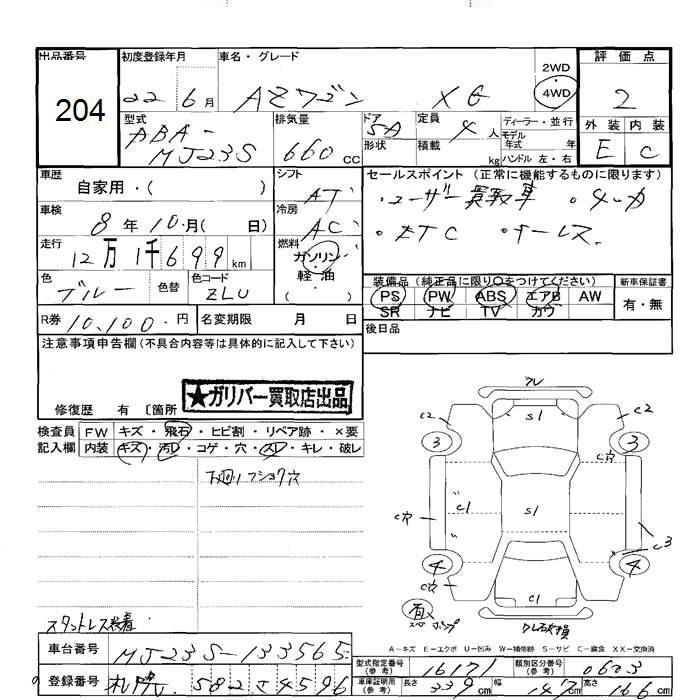 出品番号 初度登録年月 車名・グレード 2WD 評価点
204 22 6月 AZワゴン XG 4WD 2
型式 排気量 ドア 定員 ディーラー・並行 外装 内装
ABA- 5D 4人 モデル年式 年
MJ23S 660cc 形状 積載 kg ハンドル 左・右 E C
車歴 シフト セールスポイント (正常に機能するものに限ります)
自家用・( ) AT ・ユーザー買取車
車検 冷房 ・ETC ・キーレス
8年10月( 日) AC
走行 燃料
12万1千699km ガソリン
色 色替 色コード 軽・油 装備品(純正品に限り○をつけてください) 新車保証書
ブルー ZLU ( ) PS PW ABS エアB AW 有・無
SR ナビ TV カワ
R券 10,100円 名変期限 月 日 後日品
注意事項申告欄(不具合内容等は具体的に記入して下さい)
★ガリバー買取店出品
修復歴 有 〔箇所
検査員 FW キズ・飛石・ヒビ割・リペア跡・×要
記入欄 内装 キズ・汚レ・コゲ・穴・スレ・キレ・破レ
下廻リフショク穴
フレ
C2 S1 C2
3 3
C穴
C穴 C1 S1 C3
4 4
C穴 C1
有
スタットレス装着
A-キズ E-エクボ U-凹み W-補修跡 S-サビ C-腐食 XX-交換済
車台番号 MJ23S-133565 型式指定番号(参考) 16171 類別区分番号(参考) 0603
登録番号 582 4596 車庫証明用(参考) 長さ 339cm 幅 147cm 高さ 166cm